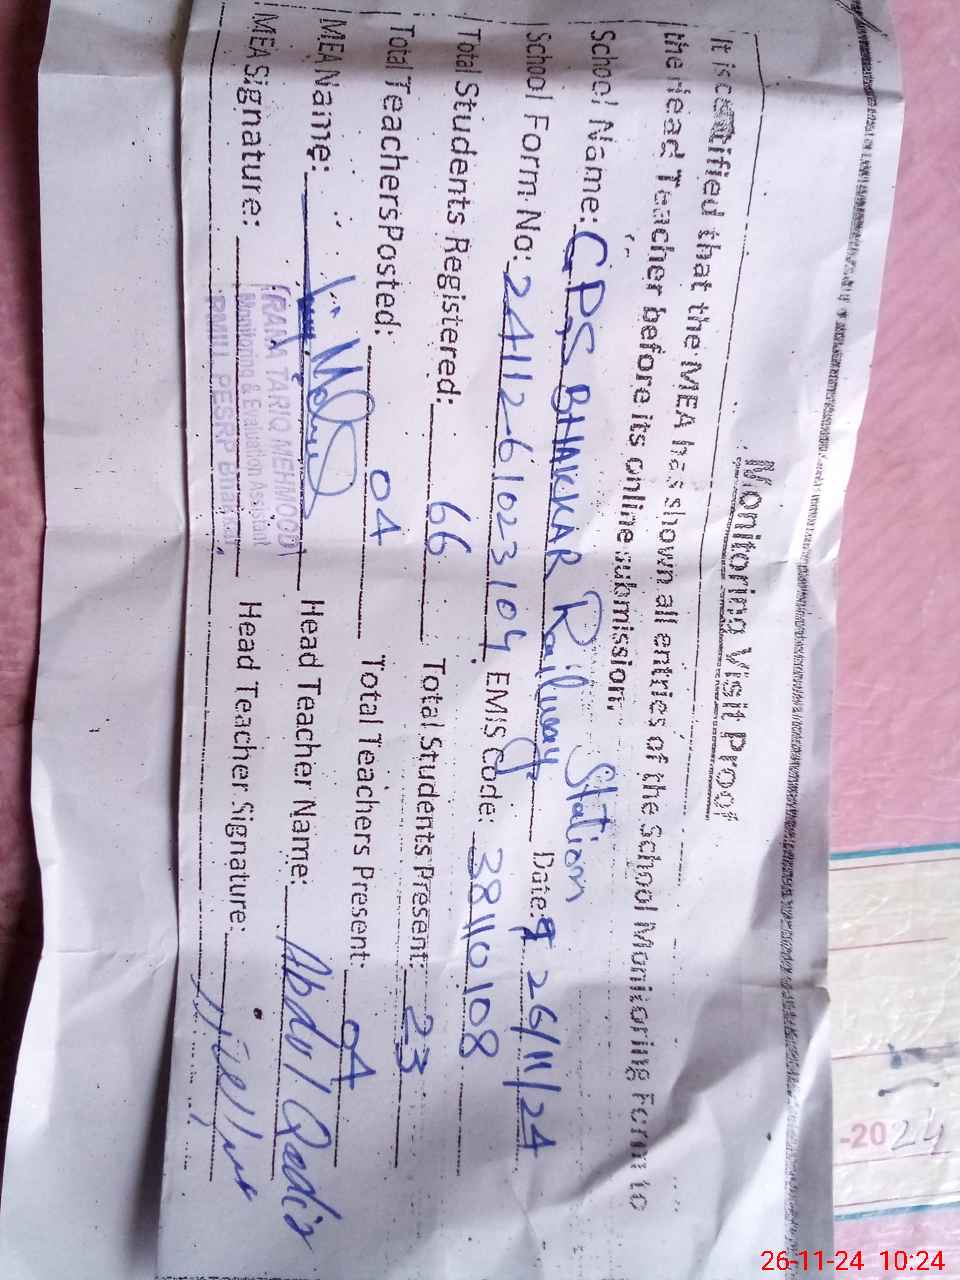 Monitoring Visit Proof
It is certified that the MEA has shown all entries of the School Monitoring Form to
the Head Teacher before its online submission.
School Name: GPS BHAKKAR Railway Station Date: 26/11/24
School Form No: 24112-61023104 EMIS Code: 38110108
Total Students Registered: 66 Total Students Present: 23
Total Teachers Posted: 04 Total Teachers Present: 04
MEA Name: Head Teacher Name: Abdul Qadir
MEA Signature: Head Teacher Signature:
(RANA TARIQ MEHMOOD)
Monitoring & Evaluation Assistant
PMIU PESRP Bhakkar
-2024
26-11-24 10:24